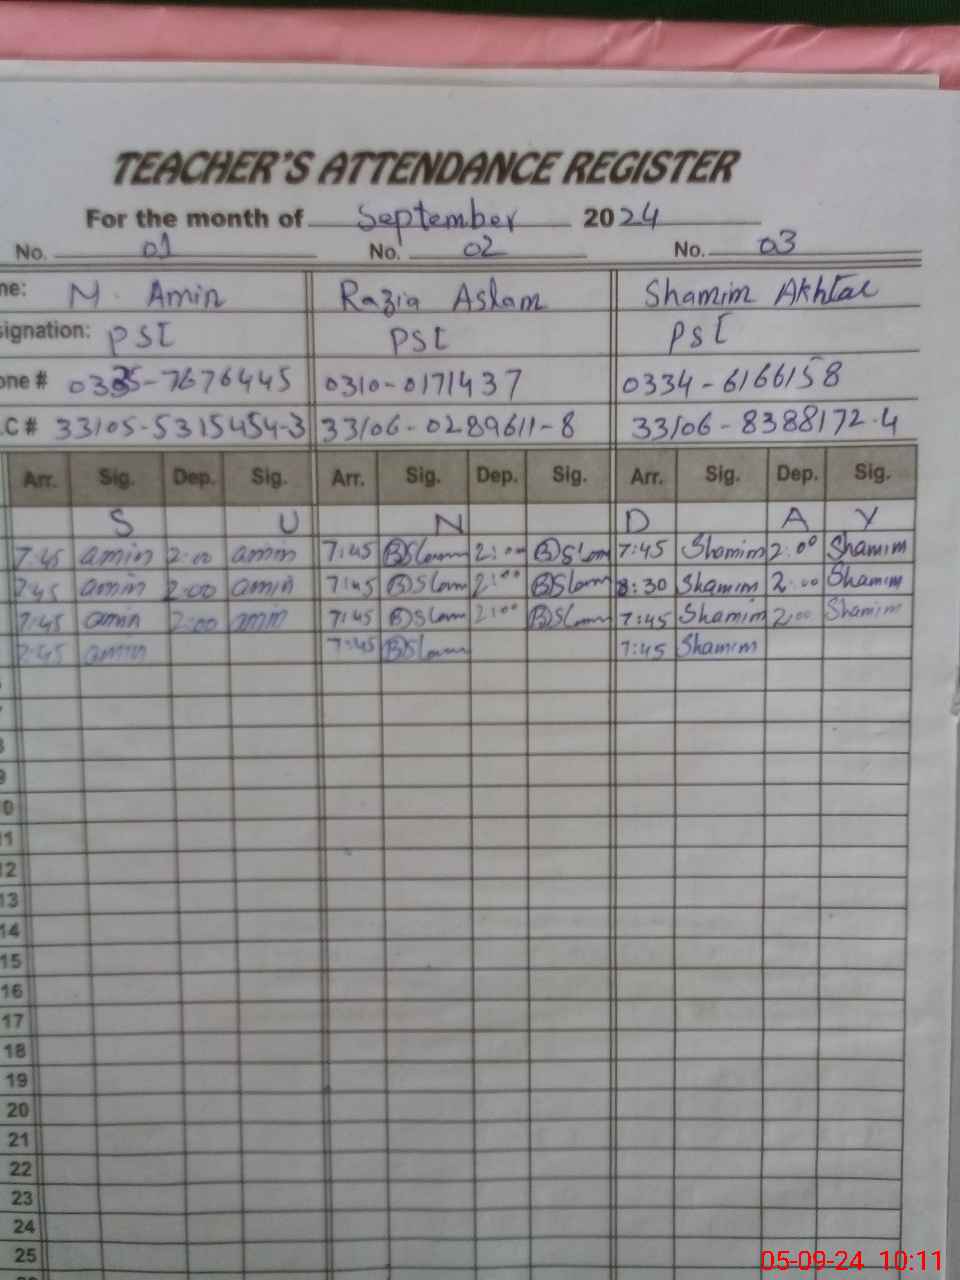 TEACHER'S ATTENDANCE REGISTER
For the month of September 2024
No. 01 No. 02 No. 03
me: M. Amin Razia Aslam Shamim Akhtar
signation: PST PST PST
one # 0335-7676445 0310-0171437 0334-6166158
.C # 33105-5315454-3 33106-0289611-8 33106-8388172-4
Arr. Sig. Dep. Sig. Arr. Sig. Dep. Sig. Arr. Sig. Dep. Sig.
S U N D A Y
7:45 amin 2:00 amin 7:45 2:00 7:45 Shamim 2:00 Shamim
7:45 amin 2:00 amin 7:45 2:00 8:30 Shamim 2:00 Shamim
7:45 amin 2:00 amin 7:45 2:00 7:45 Shamim 2:00 Shamim
7:45 amin 7:45 7:45 Shamim
8
9
10
11
12
13
14
15
16
17
18
19
20
21
22
23
24
25
05-09-24 10:11